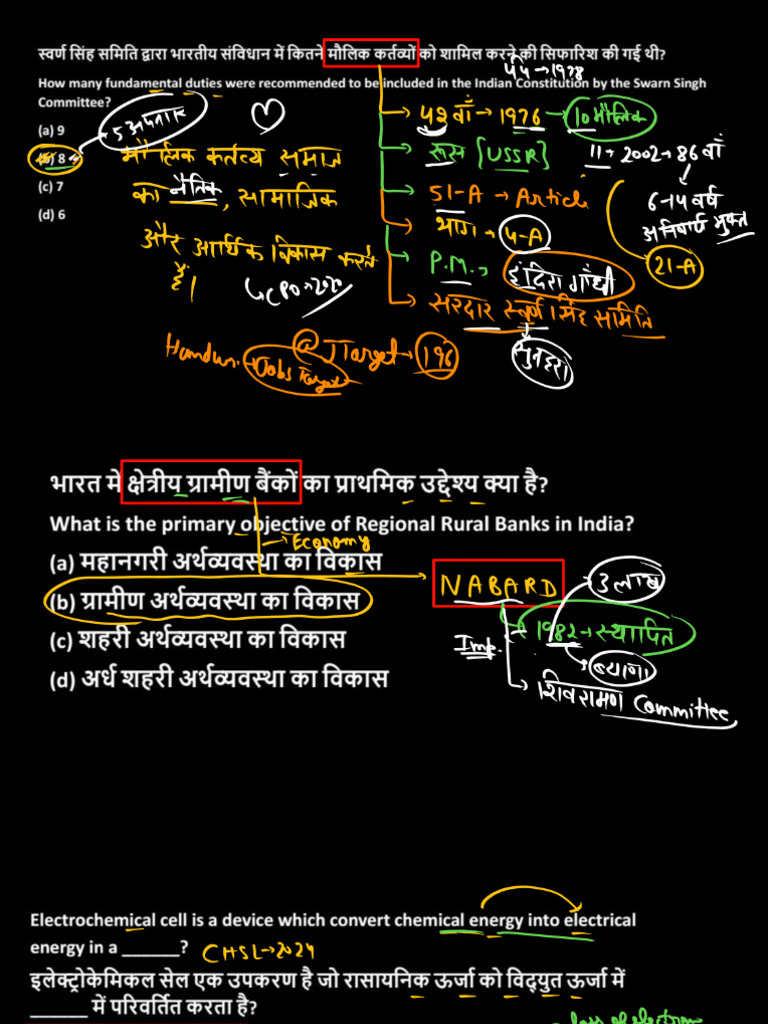 स्वर्ण सिंह समिति द्वारा भारतीय संविधान में कितने मौलिक कर्तव्यों को शामिल करने की सिफारिश की गई थी?
44 → 1978
How many fundamental duties were recommended to be included in the Indian Constitution by the Swarn Singh
Committee?
(a) 9
(b) 8
(c) 7
(d) 6
मौलिक कर्तव्य समाज
को नैतिक, सामाजिक
और आर्थिक विकास करते
हैं।
CPO → 2020
42 वाँ → 1976 → 10 मौलिक
रूस [USSR]
11 → 2002 → 86 वाँ
6-14 वर्ष
अनिवार्य मुफ्त
21-A
51-A → Article
भाग → 4-A
P.M. → इंदिरा गाँधी
सरदार स्वर्ण सिंह समिति
सुनहरा
@ JTarget → 196
Jobs Target
भारत मे क्षेत्रीय ग्रामीण बैंकों का प्राथमिक उद्देश्य क्या है?
What is the primary objective of Regional Rural Banks in India?
→ Economy
(a) महानगरी अर्थव्यवस्था का विकास
(b) ग्रामीण अर्थव्यवस्था का विकास
(c) शहरी अर्थव्यवस्था का विकास
(d) अर्ध शहरी अर्थव्यवस्था का विकास
NABARD
3 लाख
1982 → स्थापित
Imp.
शिवरामण Committee
Electrochemical cell is a device which convert chemical energy into electrical
energy in a ______?
CHSL → 2024
इलेक्ट्रोकेमिकल सेल एक उपकरण है जो रासायनिक ऊर्जा को विद्युत ऊर्जा में
______ में परिवर्तित करता है?
loss of electron